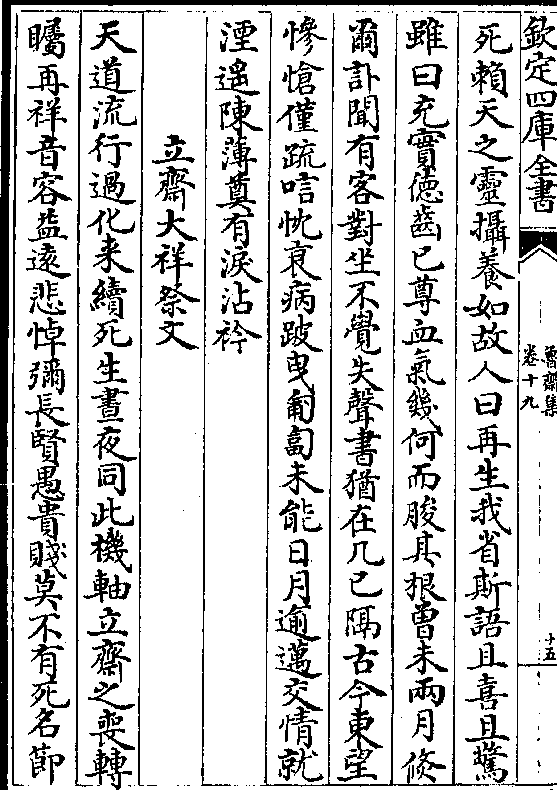 欽定四庫全書
魯齋集
卷十九
十五
死賴天之靈攝養如故人曰再生我省斯語且喜且驚
雖曰充實德齒已尊血氣幾何而朘其根曽未兩月倐
爾訃聞有客對坐不覺失聲書猶在几已隔古今東望
慘愴僅疏唁忱衰病跛曳匍匐未能日月逾邁交情就
湮遥陳薄奠有淚沾衿
立齋大祥祭文
天道流行過化来續死生晝夜同此機軸立齋之喪轉
矚再祥音容益遠悲悼彌長賢愚貴賤莫不有死名節